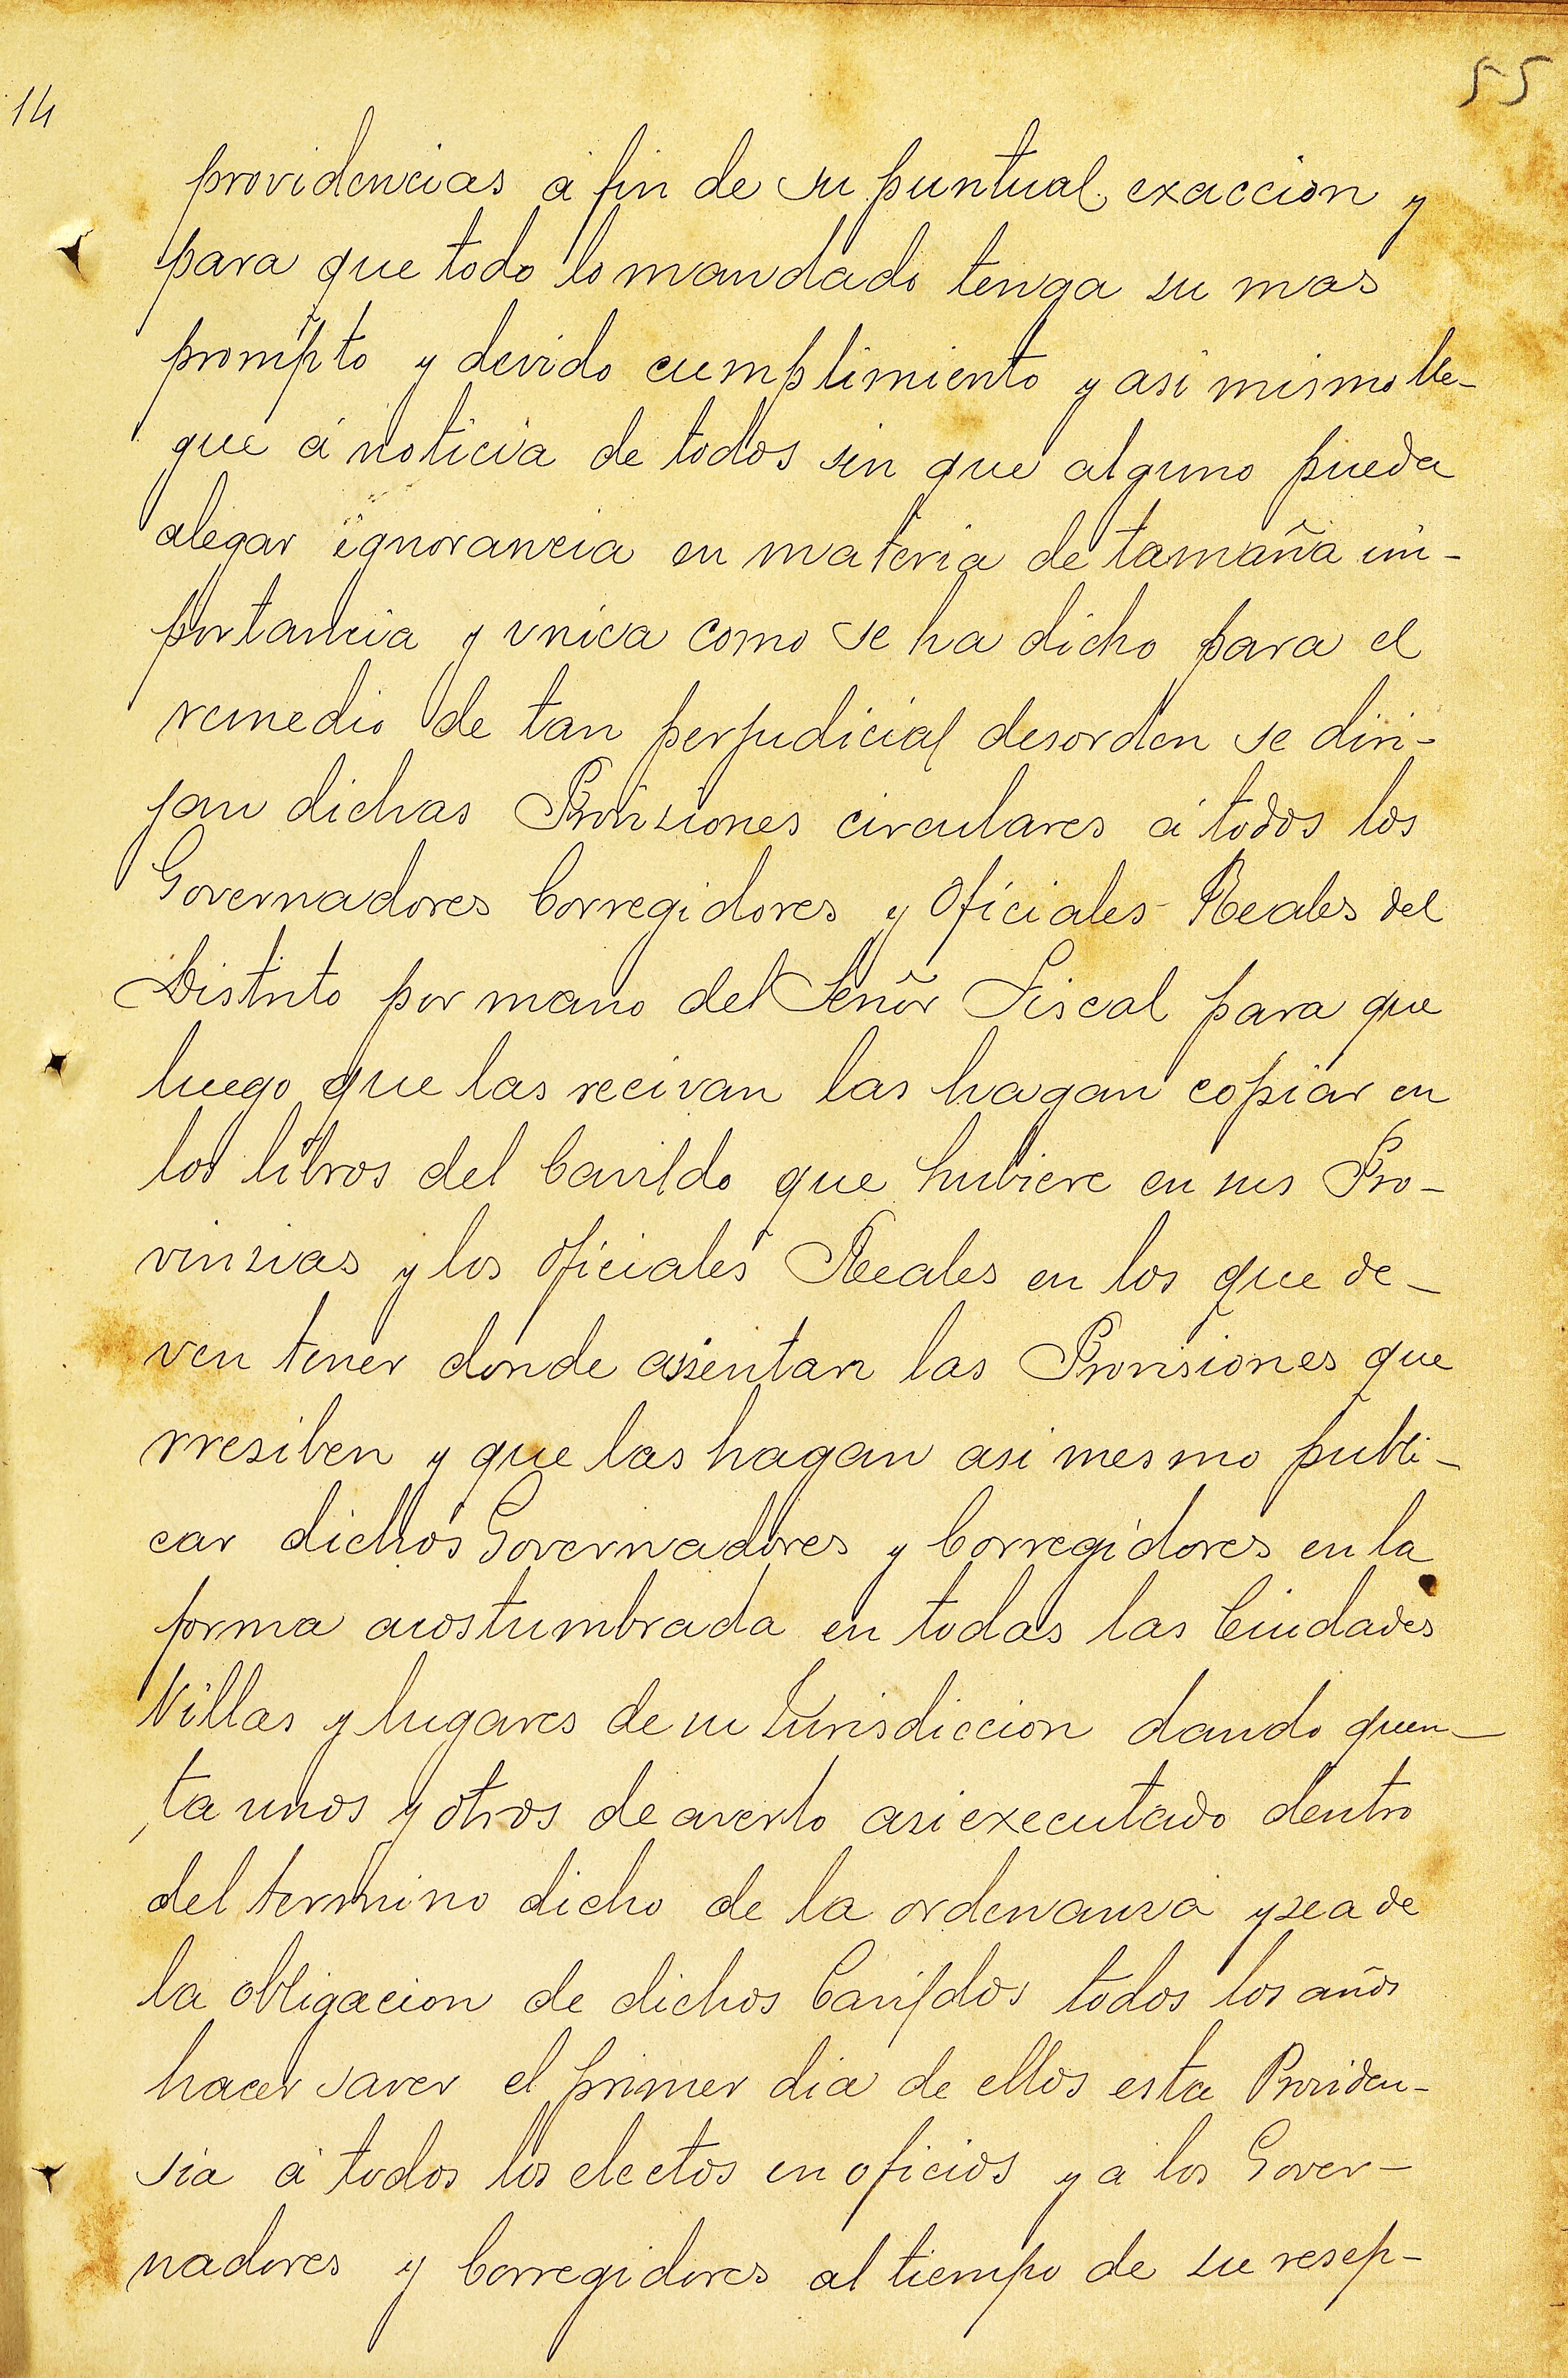 14
55
providencias á fin de su puntual exaccion y
para que todo lo mandado tenga su mas
prompto y devido cumplimiento y asi mismo lle-
gue á noticia de todos sin que alguno pueda
alegar ignorancia en materia de tamaña im-
portancia y vnica como se ha dicho para el
remedio de tan perjudicial desorden se diri-
jan dichas Provisiones circulares á todos los
Governadores Corregidores y Oficiales Reales del
Distrito por mano del Señor Fiscal para que
luego que las recivan las hagan copiar en
los libros del Cavildo que hubiere en sus Pro-
vinzias y los Oficiales Reales en los que de-
ven tener donde assientan las Provisiones que
rresiben y que las hagan asi mesmo publi-
car dichos Governadores y Corregidores en la
forma acostumbrada en todas las Ciudades
Villas y lugares de su Jurisdiccion dando quen-
ta unos y otros de averlo asi executado dentro
del termino dicho de la ordenanza y sea de
la obligacion de dichos Cavildos todos los años
hacer saver el primer dia de ellos esta Providen-
sia á todos los electos en oficios y a los Gover-
nadores y Corregidores al tiempo de su resep-